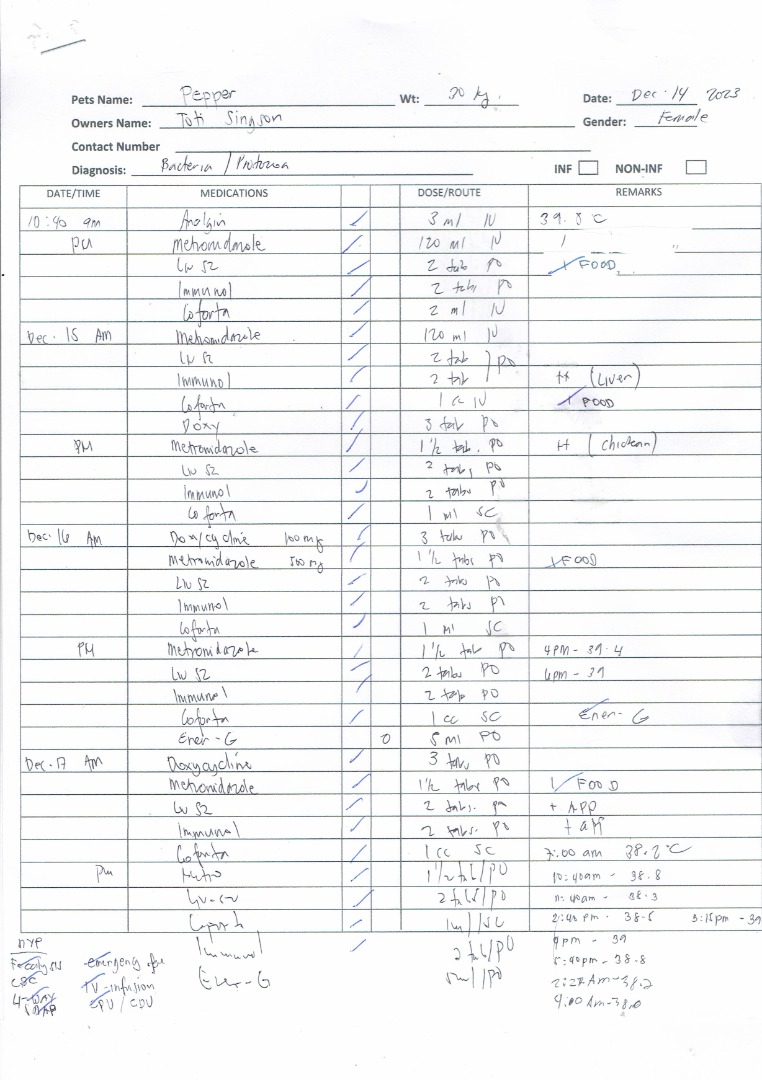 Pets Name: Pepper Wt: 30 kg Date: Dec. 14 2023
Owners Name: Toti Singson Gender: Female
Contact Number
Diagnosis: Bacteria / Protozoa INF NON-INF
DATE/TIME MEDICATIONS DOSE/ROUTE REMARKS
10:40 am Analgin 3 ml IV 39.8 °C
PM Metronidazole 120 ml IV
Liv 52 2 tab PO FOOD
Immunol 2 tabs PO
Coforta 2 ml IV
Dec. 15 Am Metronidazole 120 ml IV
Liv 52 2 tab
Immunol 2 tab PO (Liver)
Coforta 1 cc IV FOOD
Doxy 3 tab PO
PM Metronidazole 1 1/2 tab. PO (chicken)
Liv 52 2 tabs PO
Immunol 2 tabs PO
Coforta 1 ml SC
Dec. 16 Am Doxycycline 100 mg 3 tabs PO
Metronidazole 500 mg 1 1/2 tabs PO FOOD
Liv 52 2 tabs PO
Immunol 2 tabs PO
Coforta 1 ml SC
PM Metronidazole 1 1/2 tab PO 4PM - 39.4
Liv 52 2 tabs PO 6pm - 39
Immunol 2 tab PO
Coforta 1 cc SC Ener-G
Ener-G 0 5 ml PO
Dec. 17 AM Doxycycline 3 tabs PO
Metronidazole 1 1/2 tabs PO FOOD
Liv 52 2 tabs. PO + APP
Immunol 2 tabs. PO + aff
Coforta 1 cc SC 7:00 am 38.2°C
Pm Metro 1 1/2 tab/PO 10:40am - 38.8
Liv-52 2 tab/PO 11:40am - 38.3
1ml/SC 2:40 pm - 38.5 3:15pm - 39
Immunol 2 tab/PO 4pm - 39
Fecalysis emergency fee 5:40pm - 38.8
CBC IV-infusion Ener-G 5ml/PO 2:22 AM-38.2
4-WAY CPU / CDU 4:00 Am-38.0
SNAP